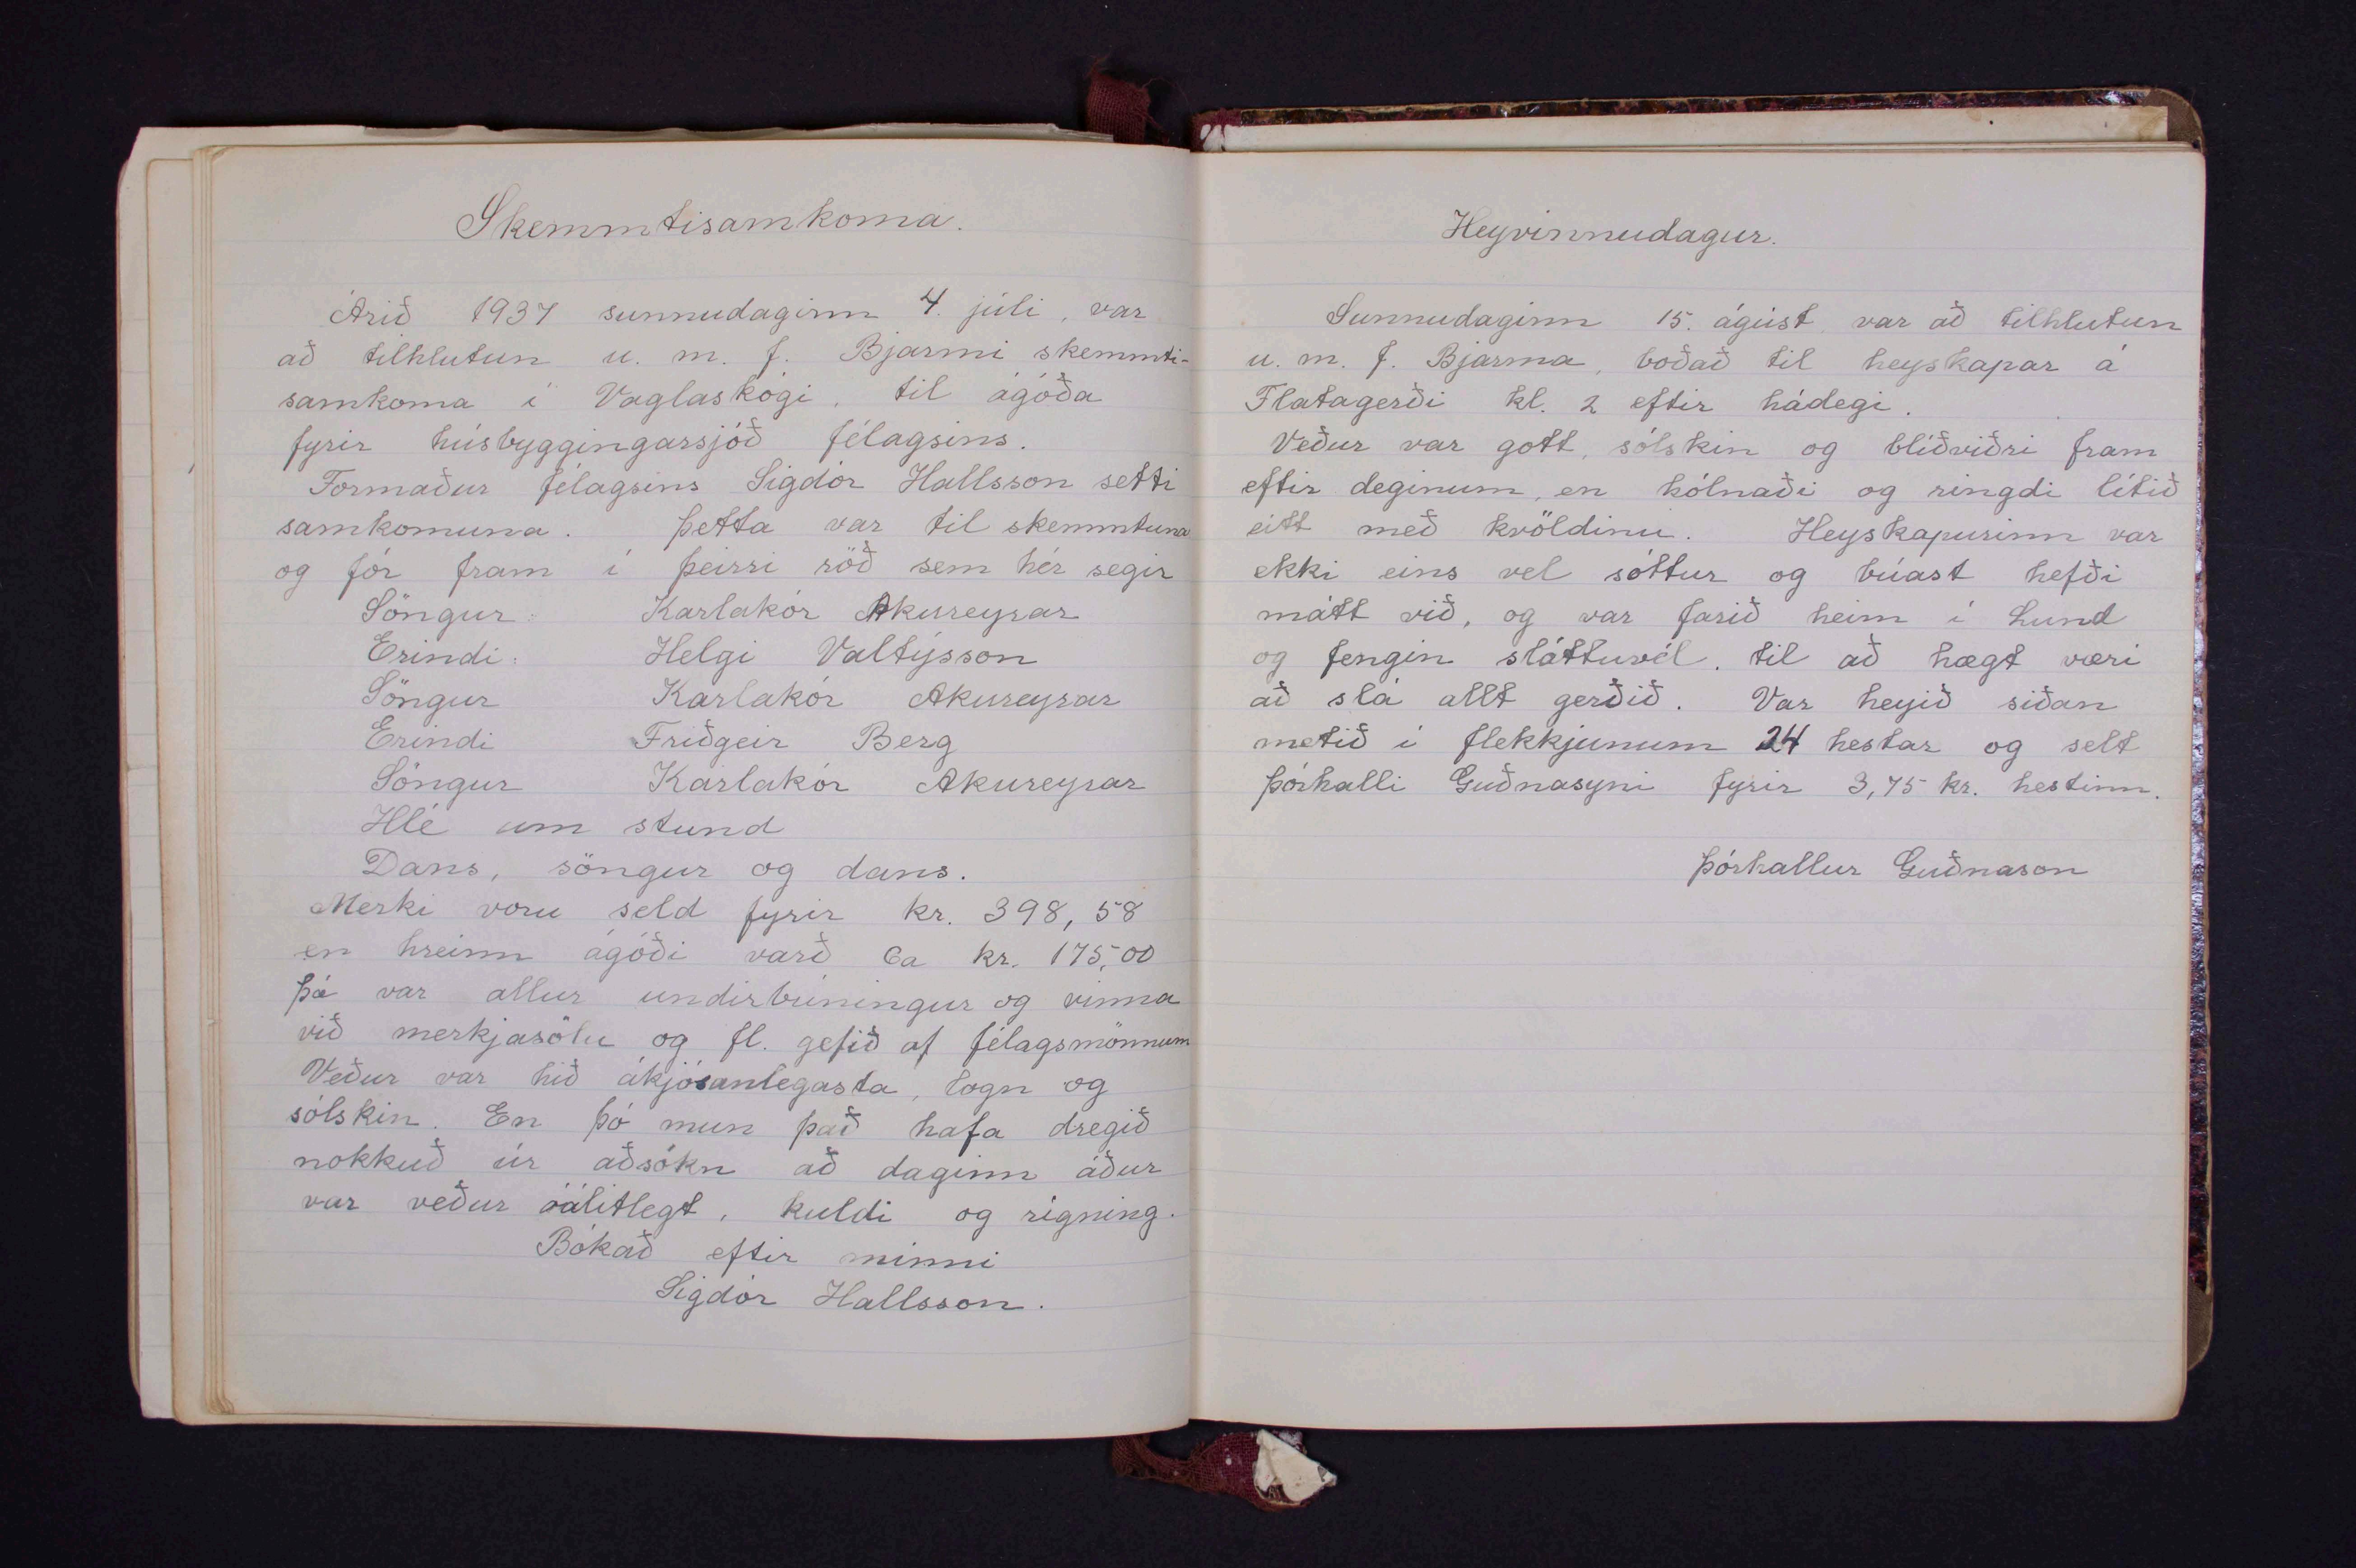 Skemmtisamkoma.
Árið 1937 sunnudaginn 4. júlí, var
að tilhlutun u. m. f. Bjarmi skemmti-
samkoma í Vaglaskógi, til ágóða
fyrir húsbyggingarsjóð félagsins.
Formaður félagsins Sigdór Hallsson setti
samkomuna. Þetta var til skemmtuna
og fór fram í þeirri röð sem hér segir
Söngur: Karlakór Akureyrar
Erindi: Helgi Valtýsson
Söngur Karlakór Akureyrar
Erindi Friðgeir Berg
Söngur Karlakór Akureyrar
Hlé um stund
Dans, söngur og dans.
Merki voru seld fyrir kr. 398,58
en hreinn ágóði varð ca kr. 175,00
þá var allur undirbúningur og vinna
við merkjasölu og fl. gefið af félagsmönnum
Veður var hið ákjósanlegasta, logn og
sólskin. En þó mun það hafa dregið
nokkuð úr aðsókn að daginn áður
var veður óálitlegt, kuldi og rigning.
Bókað eftir minni
Sigdór Hallsson.
Heyvinnudagur.
Sunnudaginn 15. ágúst, var að tilhlutun
u. m. f. Bjarma, boðað til heyskapar á
Flatagerði kl. 2 eftir hádegi.
Veður var gott, sólskin og blíðviðri fram
eftir deginum, en kólnaði og ringdi lítið
eitt með kvöldinu. Heyskapurinn var
ekki eins vel sóttur og búast hefði
mátt við, og var farið heim í Lund
og fengin sláttuvél, til að hægt væri
að slá allt gerðið. Var heyið síðan
metið í flekkjunum 24 hestar og selt
Þórhalli Guðnasyni fyrir 3,75 kr. hestinn.
Þórhallur Guðnason